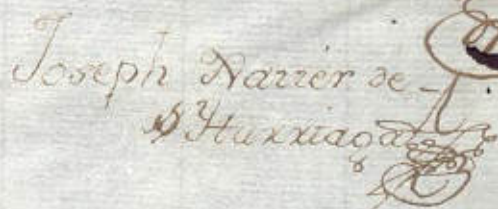 Joseph Xavier de
Yturriaga